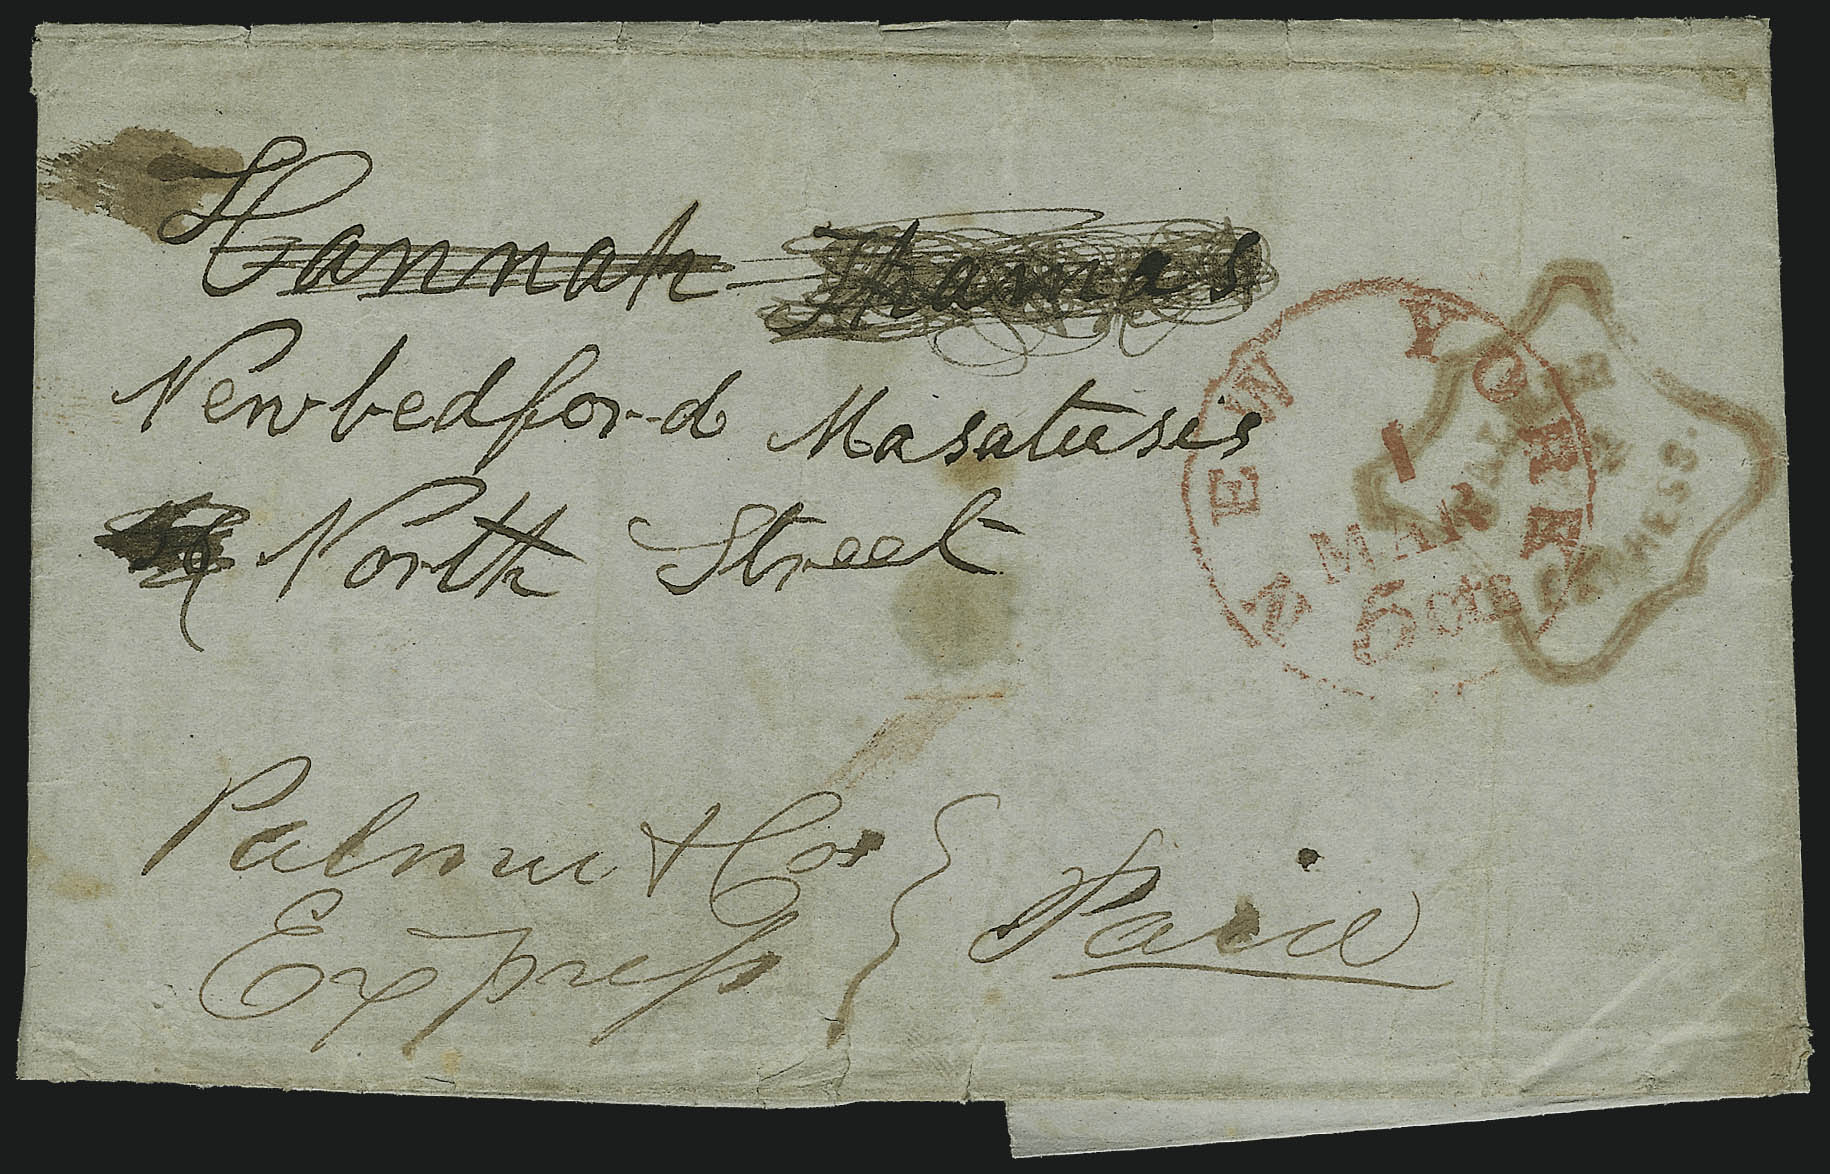 Hannah Thamas
Newbedford Masatusis
North Street
NEW YORK
1
MAR
5cts
Palmer & Cos
Express
Paid